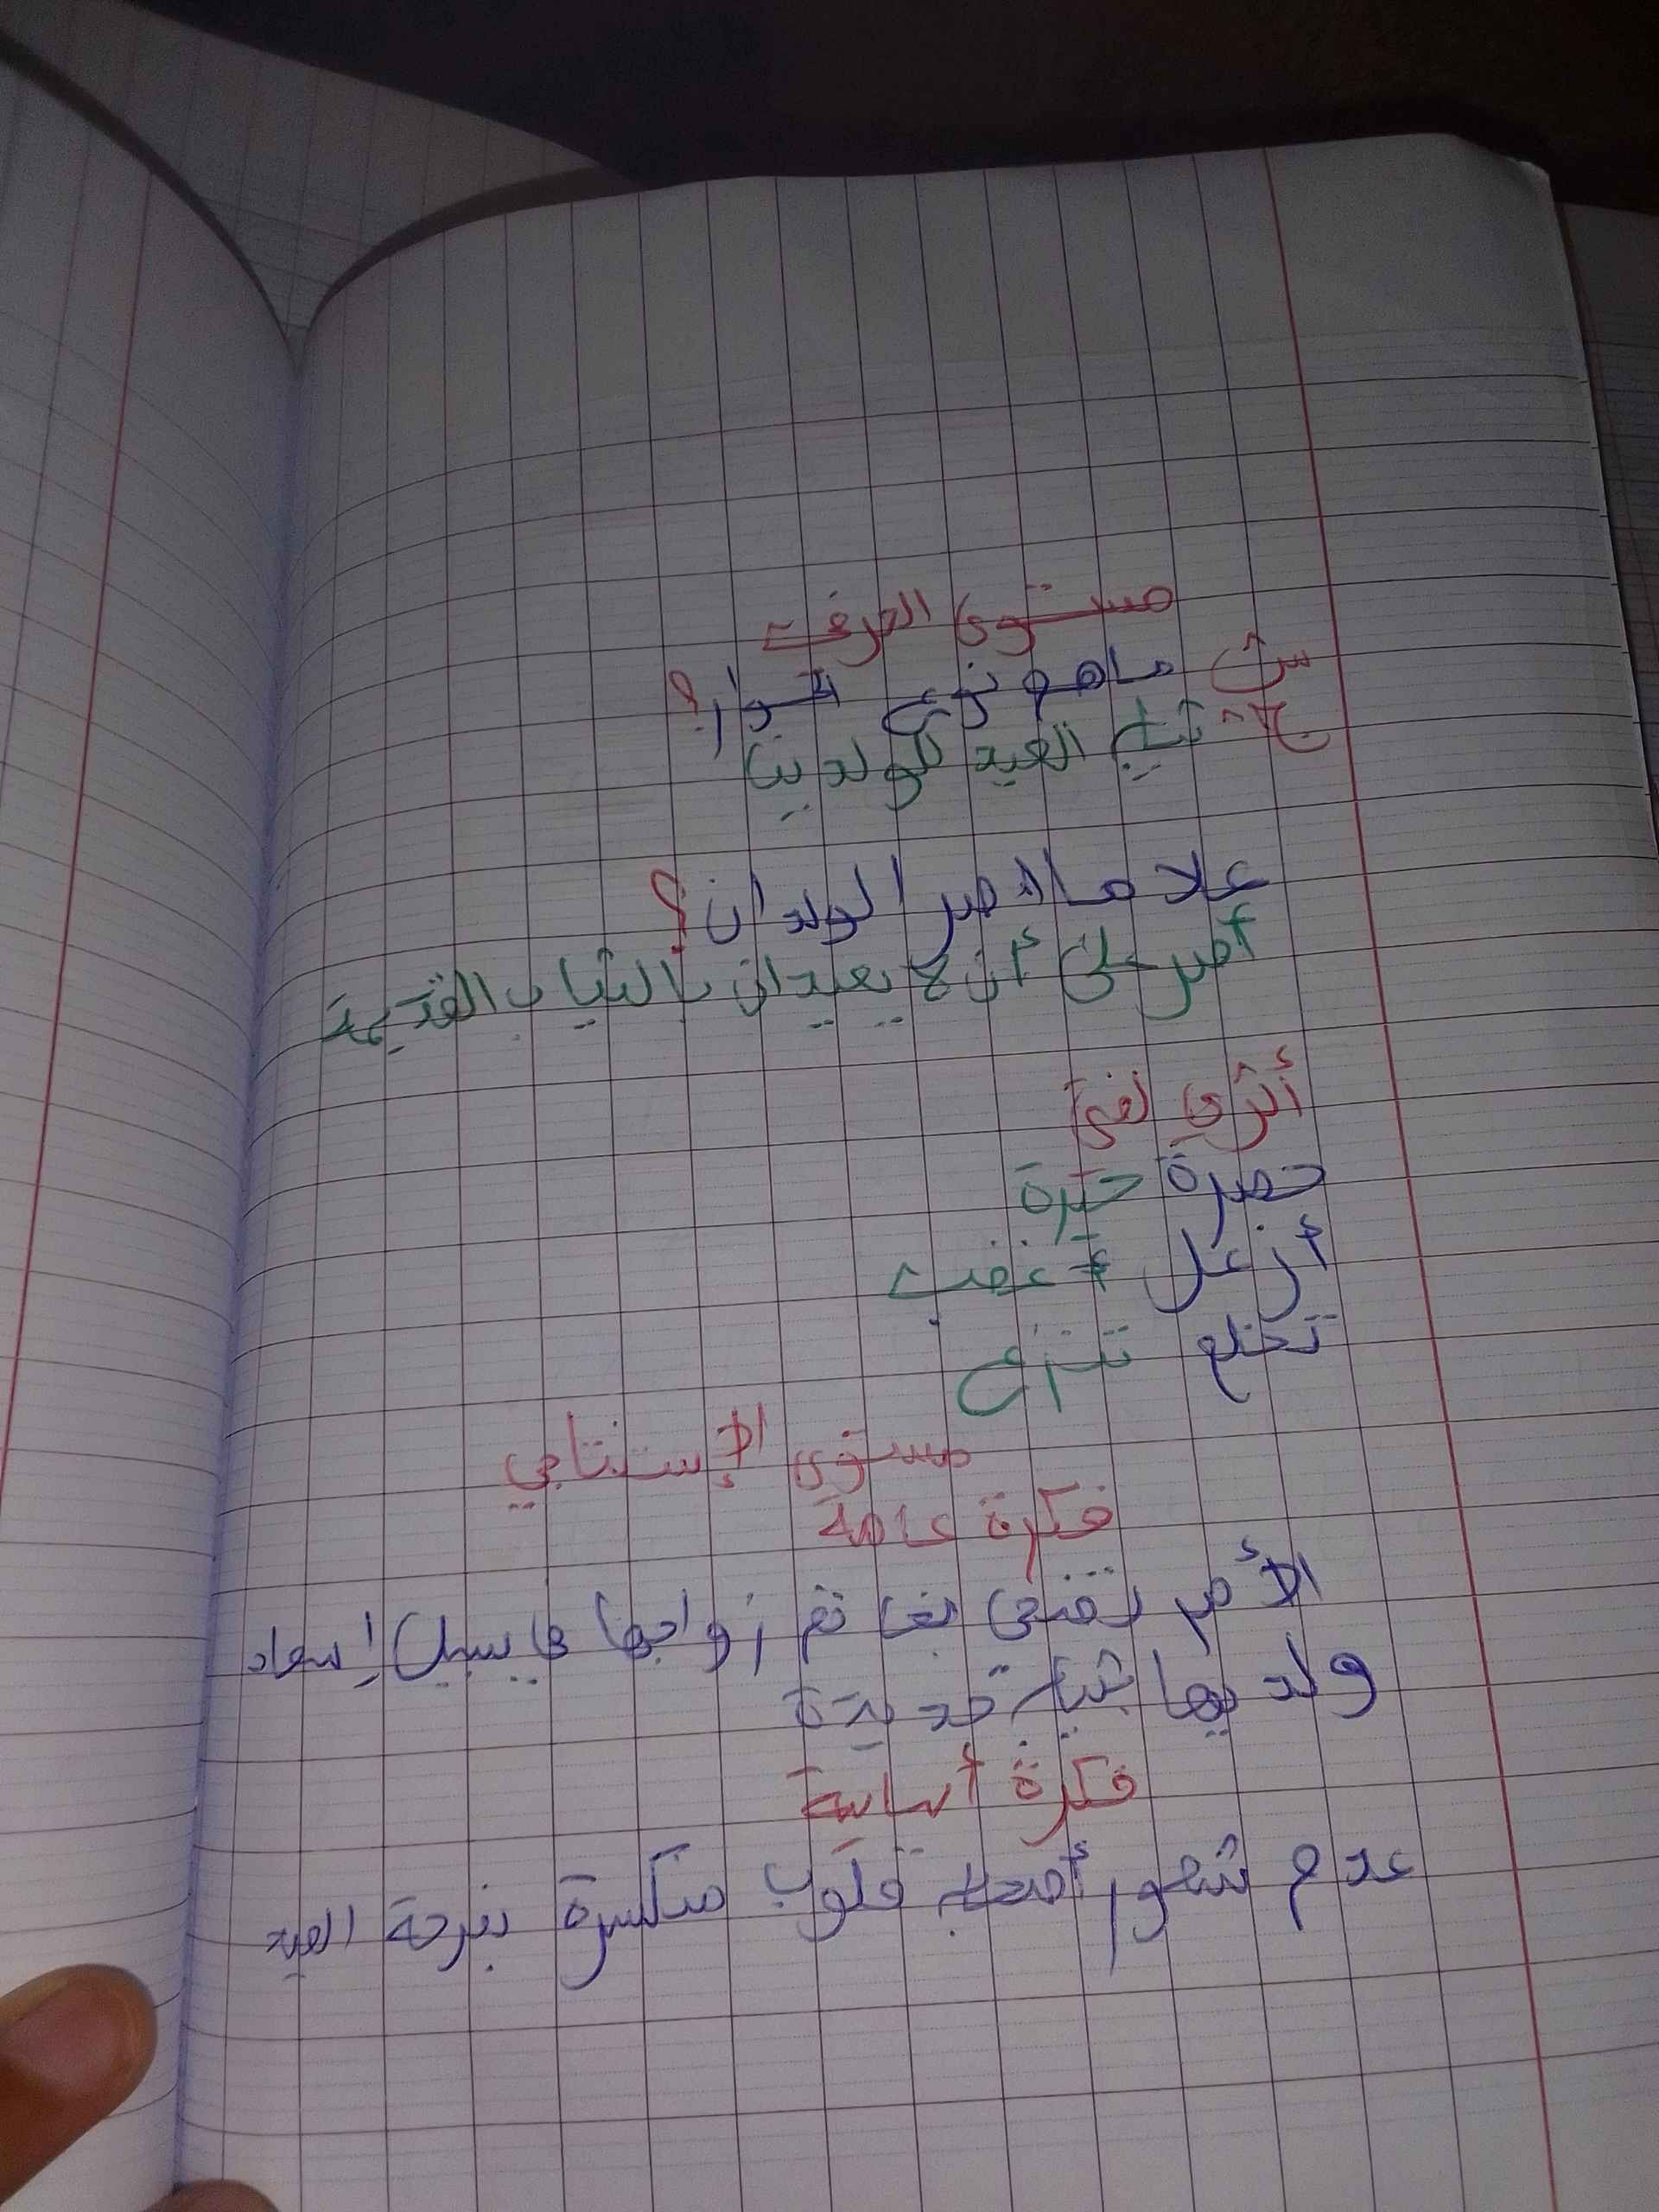 مستوى الحرفي
س ماهو نوع الحوار؟
ج ثياب العيد للولدين
علا ما اصر الولدان؟
أصر على أن لا يعيدان بالثياب القديمة
أثري لغتي
حصرة حيرة
أزعل أغضب
تخلع تنزع
مستوى الإستنتاجي
فكرة عامة
الأم تضحى بخاتم زواجها في سبيل إسعاد
ولديها بثياب جديدة
فكرة أساسية
عدم شعور أصحاب قلوب منكسرة بفرحة العيد